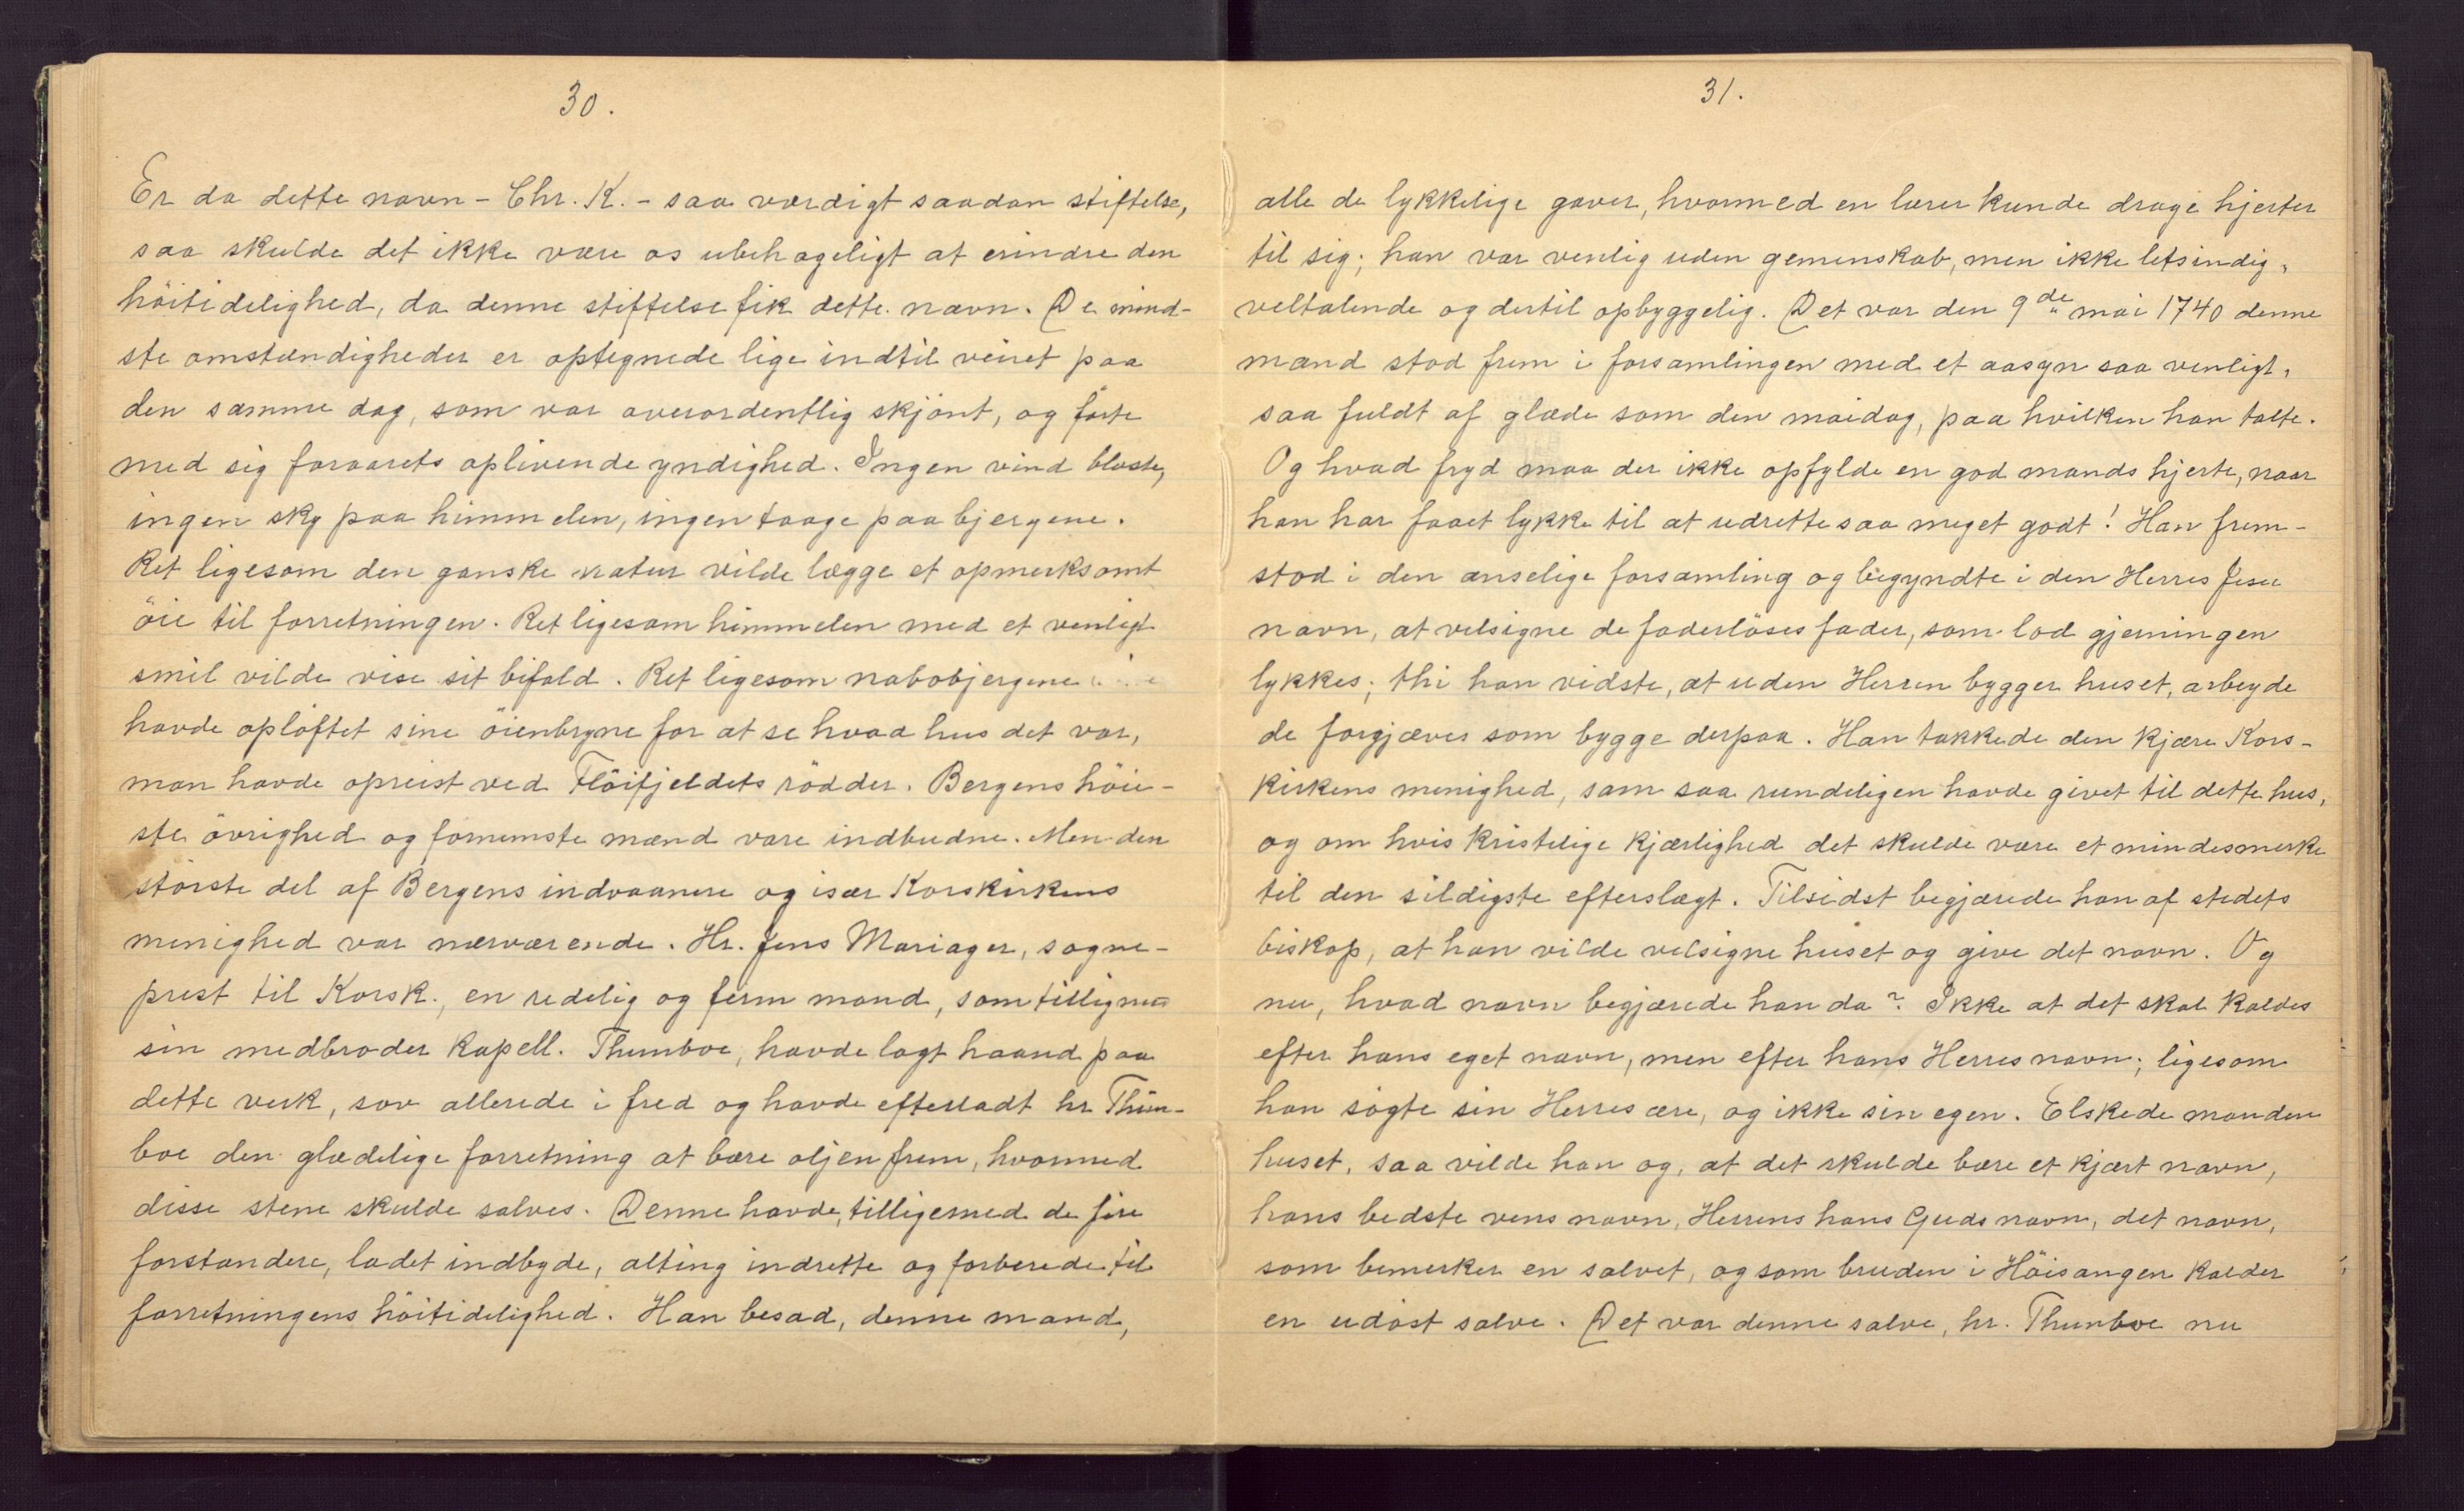 30.
Er da dette navn - Chr. K. - saa værdigt saadan stiftelse,
saa skulde det ikke være os ubehageligt at erindre den
höitidelighed, da denne stiftelse fik dette navn. De mind-
ste omstændigheder er optegnede lige indtil veiret paa
den samme dag, som var overordentlig skjönt, og förte
med sig foraarets oplivende yndighed. Ingen vind blæste,
ingen sky paa himmelen, ingen taage paa bjergene.
Ret ligesom den ganske natur vilde lægge et opmerksomt
öie til forretningen. Ret ligesom himmelen med et venligt
smil vilde vise sit bifald. Ret ligesom nabobjergene
havde oplöftet sine öienbryne for at se hvad hus det var,
man havde opreist ved Flöifjeldets rödder. Bergens höie-
ste övrighed og fornemste mænd vare indbudne. Men den
störste del af Bergens indvaanere og især Korskirkens
menighed var nærværende. Hr. Jens Mariager, sogne-
prest til Korsk., en redelig og ferm mand, som tilligmed
sin medbroder kapell. Thunboe, havde lagt haand paa
dette verk, sov allerede i fred og havde efterladt hr. Thun-
boe den glædelige forretning at bære oljen frem, hvormed
disse stene skulde salves. Denne havde, tilligemed de fire
forstandere, ladet indbyde, alting indrette og forberede til
forretningens höitidelighed. Han besad, denne mand,
31.
alle de lykkelige gaver, hvormed en lærer kunde drage hjerter
til sig; han var venlig uden gemenskab, men ikke letsindig,
veltalende og dertil opbyggelig. Det var den 9de mai 1740 denne
mand stod frem i forsamlingen med et aasyn saa venligt,
saa fuldt af glæde som den maidag, paa hvilken han talte.
Og hvad fryd maa der ikke opfylde en god mands hjerte, naar
han har faaet lykke til at udrette saa meget godt! Han frem-
stod i den anselige forsamling og begyndte i den Herres Jesu
navn, at velsigne de faderlöses fader, som lod gjerningen
lykkes; thi han vidste, at uden Herren bygger huset, arbeyde
de forgjæves som bygge derpaa. Han takkede den kjære Kors-
kirkens menighed, som saa rundeligen havde givet til dette hus,
og om hvis kristelige kjærlighed det skulde være et mindesmerke
til den sildigste efterslægt. Tilsidst begjærede han af stedets
biskop, at han vilde velsigne huset og give det navn. Og
nu, hvad navn begjærede han da? Ikke at det skal kaldes
efter hans eget navn, men efter hans Herres navn; ligesom
han sögte sin Herres ære, og ikke sin egen. Elskede manden
huset, saa vilde han og, at det skulde bære et kjært navn,
hans bedste vens navn, Herrens hans Guds navn, det navn,
som bemerker en salvet, og som bruden i Höisangen kalder
en udöst salve. Det var denne salve, hr. Thunboe nu